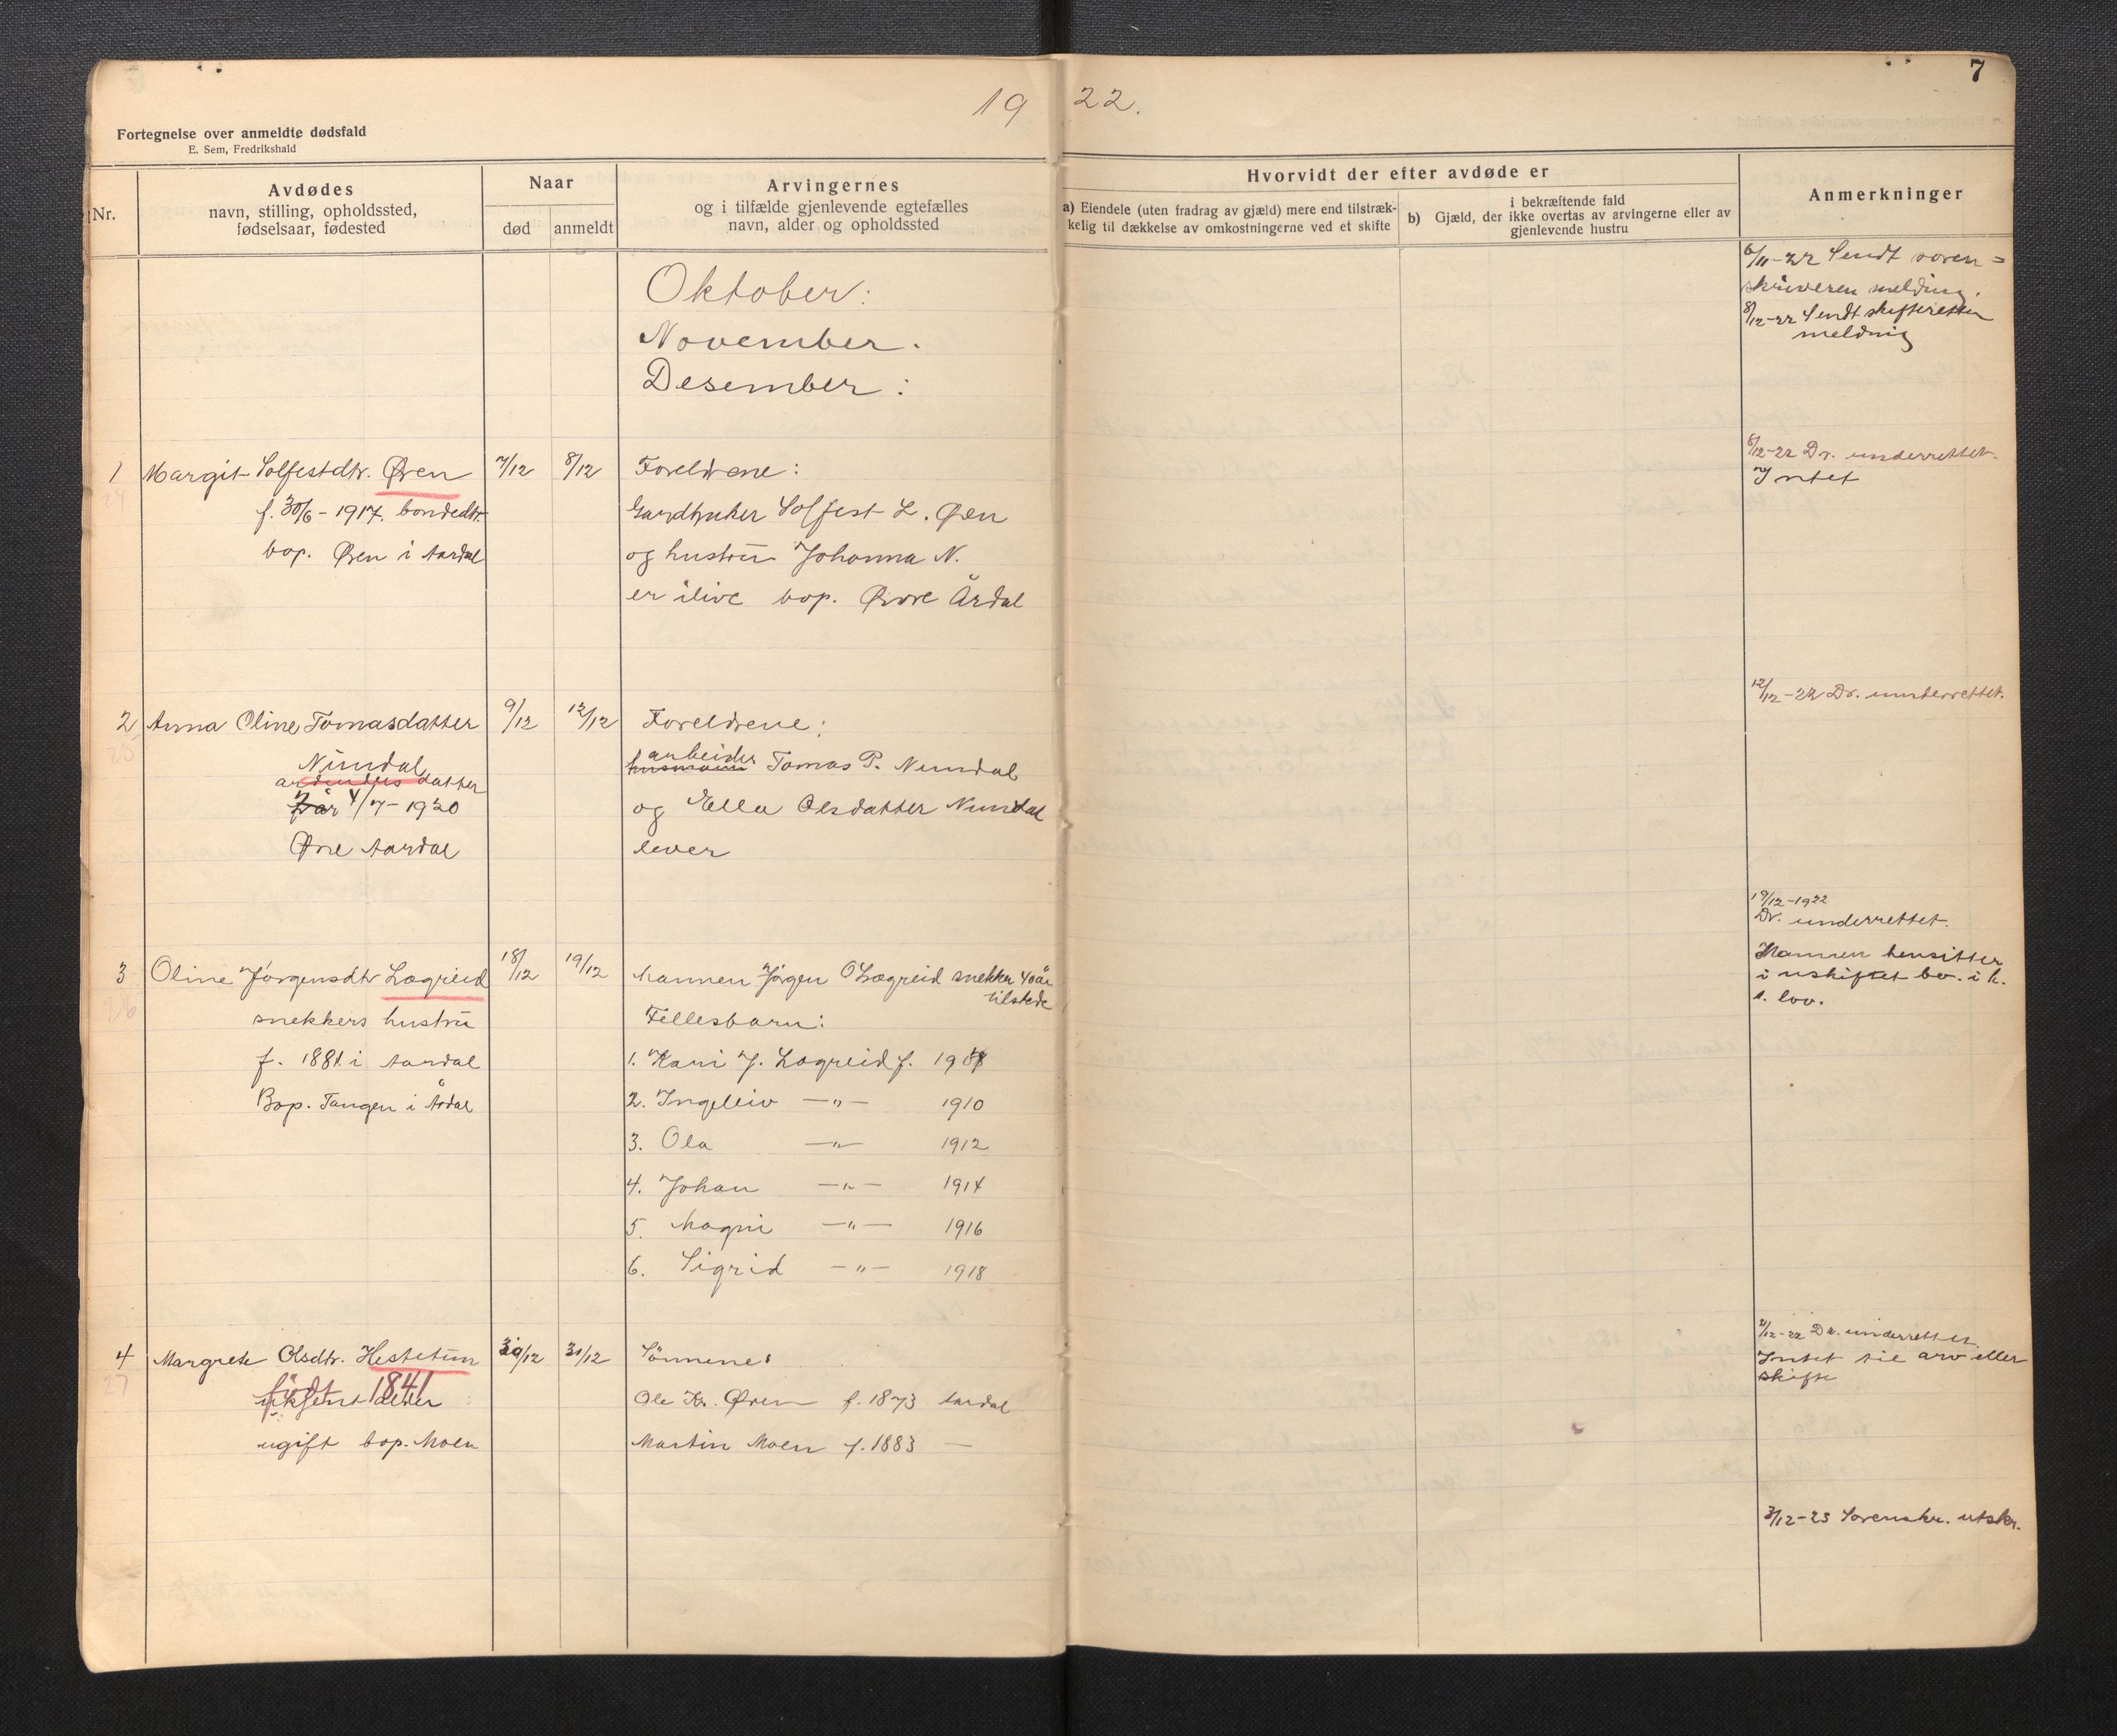 7
19 22.
Fortegnelse over anmeldte dødsfald
E. Sem, Fredrikshald
Nr.
Avdødes
navn, stilling, opholdssted,
fødselsaar, fødested
Naar
død
anmeldt
Arvingernes
og i tilfælde gjenlevende egtefælles
navn, alder og opholdssted
Hvorvidt der efter avdøde er
a) Eiendele (uten fradrag av gjæld) mere end tilstræk-
kelig til dækkelse av omkostningerne ved et skifte
b) Gjæld, der i bekræftende fald
ikke overtas av arvingerne eller av
gjenlevende hustru
Anmerkninger
Oktober:
November.
Desember:
6/11-22 Sendt soren=
skriveren melding.
8/12-22 Sendt skifteretten
melding
1 Margit Solfestdtr. Øren 7/12 8/12 Foreldrene:
24
f. 30/6-1917. bondedtr.
bop. Øren i Aardal
Gardbruker Solfest L. Øren
og hustru Johanna N.
er ilive bop. Øvre Årdal
8/12-22 Dr. underrettet.
Intet
2 Anna Oline Tomasdatter 9/12 12/12 Foreldrene:
25
Nundal
arbeiders datter
2 år 4/7-1920
Øvre Aardal
arbeider
husmann Tomas P. Nundal
og Ella Olsdatter Nundal
lever
12/12-22 Dr. underrettet.
3 Oline Jørgensdtr Lægreid 18/12 19/12 Mannen Jørgen O Lægreid snekker 40 år
tilstede
26
snekkers hustru
f. 1881 i Aardal
Bop. Tangen i Årdal
Fellesbarn:
1. Kari J. Lægreid f. 1908
2. Ingeleiv —"— 1910
3. Ola —"— 1912
4. Johan —"— 1914
5. Magni —"— 1916
6. Sigrid —"— 1918
19/12-1922
Dr. underrettet.
Mannen hensitter
i uskiftet bo. i h.
t. lov.
4 Margrete Olsdtr. Hestetun 30/12 31/12 Sønnene:
27
født 1841
ugift bop. Moen
Ole Kr. Øren f. 1873 Aardal
Martin Moen f. 1883 —
31/12-22 Dr. underrettet
Intet til arv eller
skifte
3/12-23 Sorenskr. utskr.